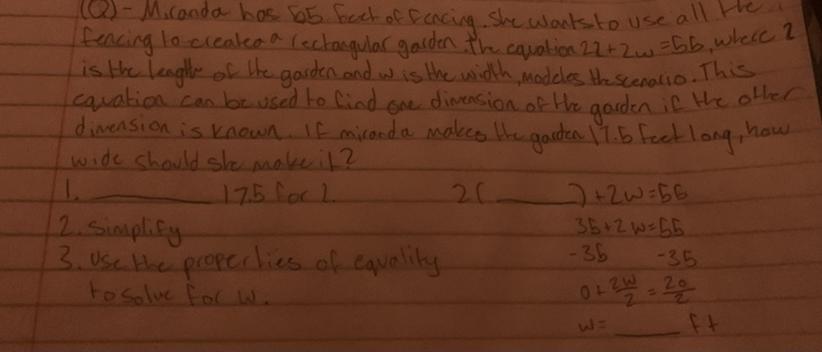 (Q)- Miranda has 55 feet of fencing. She wants to use all the
fencing to created a rectangular garden. The equation 2l+2w=55, where l
is the length of the garden and w is the width, modeles the scenario. This
equation can be used to find one dimension of the garden if the other
dimension is known. If miranda makes the garden 17.5 feet long, how
wide should she make it?
1. ________ 17.5 for l. 2( ______ )+2w=55
2. Simplify 35+2w=55
3. Use the properties of equality -35 -35
to solve for w. 0+2w/2=20/2
w= ______ ft